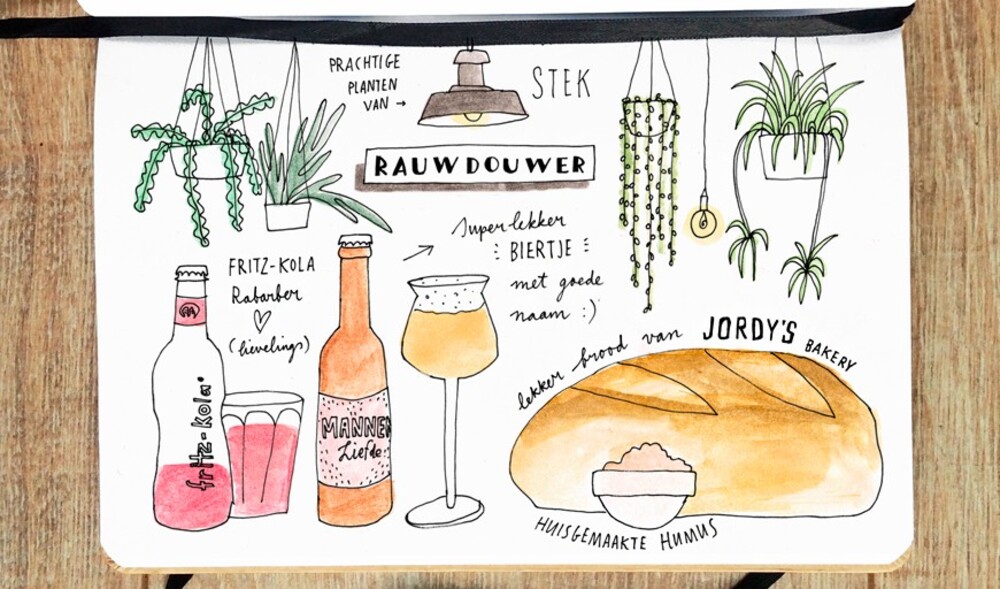 PRACHTIGE
PLANTEN
VAN →
STEK
RAUWDOUWER
Superlekker
BIERTJE
met goede
naam :)
FRITZ-KOLA
Rabarber
♡
(lievelings)
fritz-kola
MANNEN
Liefde
lekker brood van JORDY'S BAKERY
HUISGEMAAKTE HUMUS